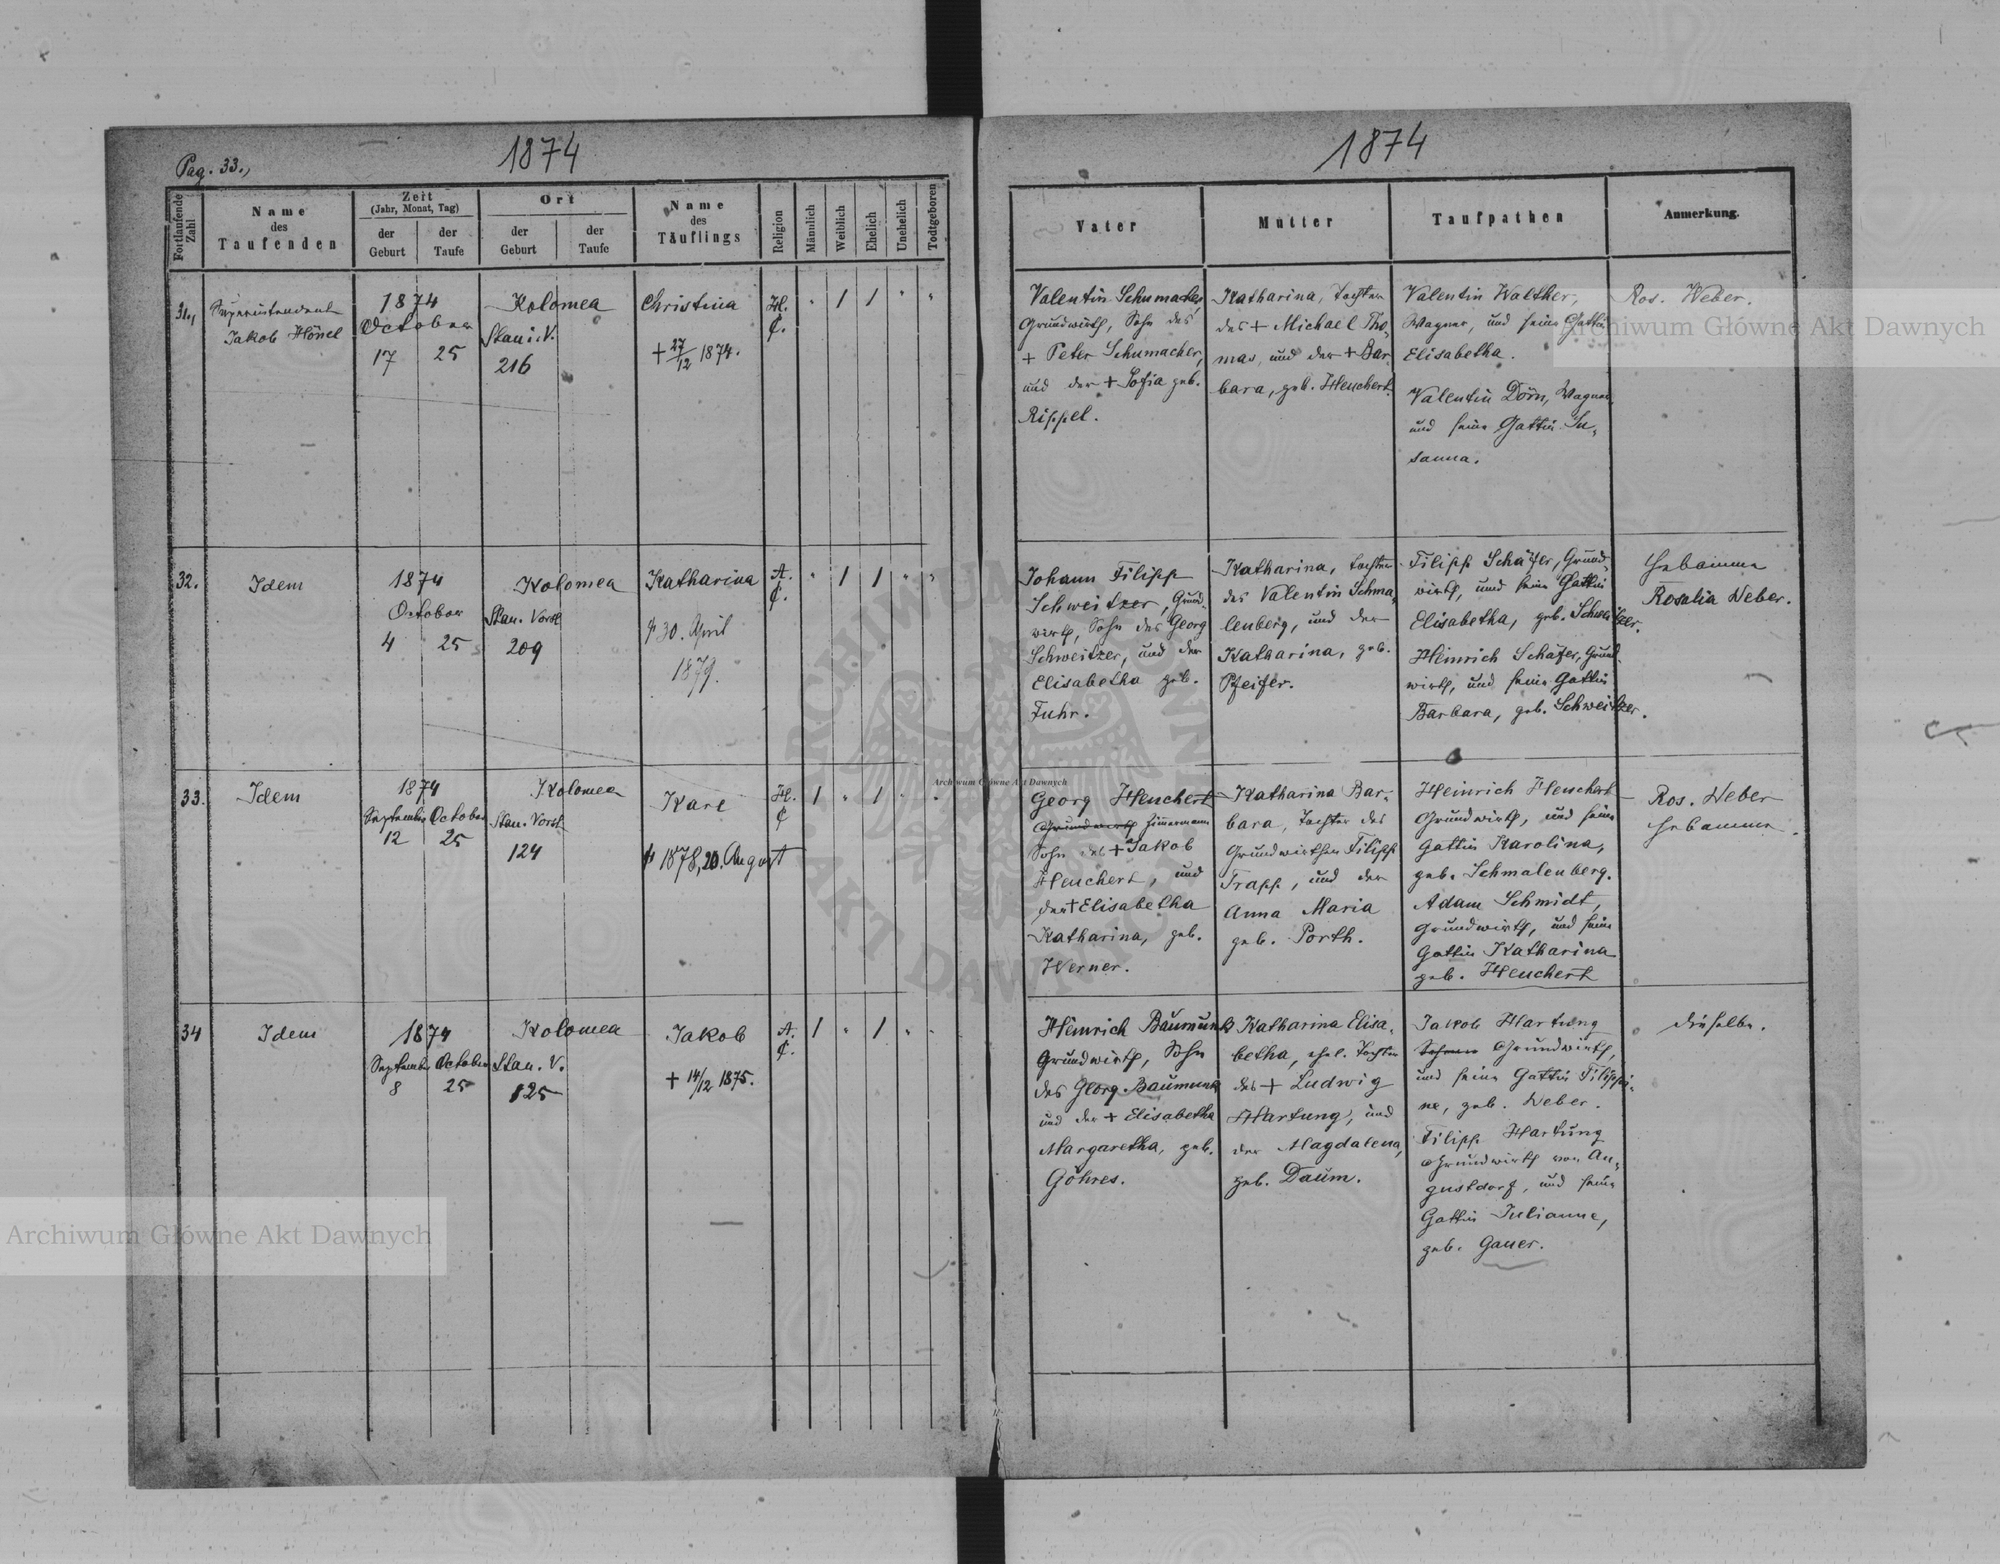 1874
1874
Pag. 33.,
Fortlaufende Zahl
Name des Taufenden
Zeit
(Jahr, Monat, Tag)
der Geburt
der Taufe
Ort
der Geburt
der Taufe
Name des Täuflings
Religion
Männlich
Weiblich
Ehelich
Unehelich
Todtgeboren
Vater
Mutter
Taufpathen
Anmerkung.
31.,
Superintendent
Jakob Hönel
1874
October
17 25
Kolomea
Stani. V.
216
Christina
+ 27/12 1874.
H.
C.
" 1 1 " "
Valentin Schumacher
Grundwirth, Sohn des
+ Peter Schumacher,
und der + Sofia geb.
Rippel.
Katharina, Tochter
des + Michael Tho,
mas, und der + Bar
bara, geb. Heuchert.
Valentin Walther,
Wagner, und seine Gattin
Elisabetha.
Valentin Dörn, Wagner
und seine Gattin Su,
sanna.
Ros. Weber.
32.
Idem
1874
October
4 25
Kolomea
Stan. Vorst
209
Katharina
+ 30. April
1879.
A.
C.
" 1 1 " "
Johann Filipp
Schweitzer, Grund,
wirth, Sohn des Georg
Schweitzer, und der
Elisabetha geb.
Fuhr.
Katharina, Tochter
des Valentin Schma,
lenberg, und der
Katharina, geb.
Pfeifer.
Filipp Schäfer, Grund,
wirth, und seine Gattin
Elisabetha, geb. Schweitzer.
Heinrich Schäfer, Grund,
wirth, und seine Gattin
Barbara, geb. Schweitzer.
Hebamme
Rosalia Weber.
33.
Idem
1874
September October
12 25
Kolomea
Stan. Vorst
124
Karl
+ 1878, 20. August
H.
C
1 " 1 " "
Georg Heuchert
Grundwirth Zimmermann
Sohn des + Jakob
Heuchert, und
der + Elisabetha
Katharina, geb.
Werner.
Katharina Bar,
bara, Tochter des
Grundwirthen Filipp
Trapp, und der
Anna Maria
geb. Porth.
Heinrich Heuchert
Grundwirth, und seine
Gattin Karolina,
geb. Schmalenberg.
Adam Schmidt,
Grundwirth, und seine
Gattin Katharina
geb. Heuchert
Ros. Weber
Hebamme.
34
Idem
1874
September October
8 25
Kolomea
Stan. V.
125
Jakob
+ 14/12 1875.
A.
C.
1 " 1 " "
Heinrich Baumunk
Grundwirth, Sohn
des Georg Baumunk
und der + Elisabetha
Margaretha, geb.
Göhres.
Katharina Elisa,
betha, ehel. Tochter
des + Ludwig
Hartung, und
der Magdalena,
geb. Daum.
Jakob Hartung
Grundwirth,
und seine Gattin Filippi,
ne, geb. Weber.
Filipp Hartung
Grundwirth von Au,
gustdorf, und seine
Gattin Julianne,
geb. Gauer.
dieselbe.
Archiwum Główne Akt Dawnych
Archiwum Główne Akt Dawnych
Archiwum Główne Akt Dawnych